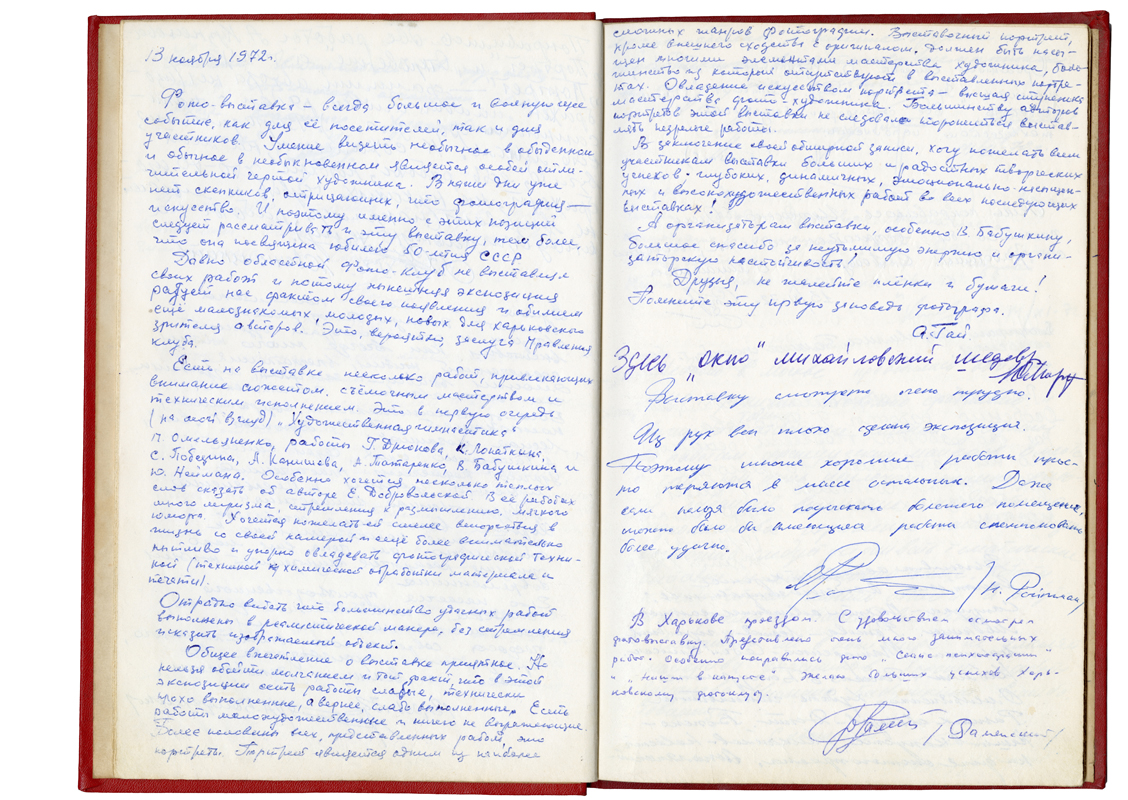 13 ноября 1972г.
Фото-выставка – всегда большое и волнующее
событие, как для её посетителей, так и для
участников. Умение видеть необычное в обыденном
и обычное в необыкновенном является особой отли-
чительной чертой художника. В наши дни уже
нет скептиков, отрицающих, что фотография —
искусство. И поэтому именно с этих позиций
следует рассматривать и эту выставку, тем более,
что она посвящена юбилею 50-летия СССР
Давно областной фото-клуб не выставлял
своих работ и потому нынешняя экспозиция
радует нас фактом своего появления и обилием
ещё малознакомых, молодых, новых для харьковского
зрителя авторов. Это, вероятно, заслуга Правления
клуба.
Есть на выставке несколько работ, привлекающих
внимание сюжетом, съёмочным мастерством и
техническим исполнением. Это в первую очередь
(на мой взгляд) „Художественная гимнастика"
П. Омельяненко, работы Г. Дрюкова, К. Лопаткина,
С. Победина, А. Татаренко, В. Бабушкина и
Ю. Наймана. Особенно хочется несколько теплых
слов сказать об авторе Е. Добровольской. В её работах
много лиризма, стремления к размышлению, мягкого
юмора. Хочется пожелать ей смелее вторгаться в
жизнь со своей камерой и ещё более внимательно
пытливо и упорно овладевать фотографической техни-
кой (техникой химической обработки материала и
печати).
Отрадно видеть что большинство удачных работ
выполнены в реалистической манере, без стремления
исказить изображаемый объект.
Общее впечатление о выставке приятное. Но
нельзя обойти молчанием и тот факт, что в этой
экспозиции есть работы слабые, технически
плохо выполненные, а вернее, слабо выполненные. Есть
работы малохудожественные и ничего не выражающие.
Более половины всех, представленных работ это
портреты. Портрет является одним из наиболее
сложных жанров фотографии. Выставочный портрет,
кроме внешнего сходства с оригиналом, должен быть насы-
щен многими элементами мастерства художника, боль-
шинство из которых отсутствуют в выставленных портре-
тах. Овладение искусством портрета – высшая ступенька
мастерства фото-художника. Большинству авторов
портретов этой выставки не следовало торопиться выстав-
лять незрелые работы.
В заключение своей обширной записи, хочу пожелать всем
участникам выставки больших и радостных творческих
успехов, глубоких, динамичных, эмоционально-насыщен-
ных и высокохудожественных работ во всех последующих
выставках!
А организаторам выставки, особенно В. Бабушкину,
большое спасибо за неутомимую энергию и органи-
заторскую настойчивость!
Друзья, не жалейте плёнки и бумаги!
Помните эту первую заповедь фотографа.
А. Гай.
Здесь „окно" михайловский шедевр
Выставку смотреть очень трудно.
Из рук вон плохо сделана экспозиция.
Поэтому многие хорошие работы прос-
то теряются в массе остальных. Даже
если нельзя было подыскать большего помещения,
можно было бы имеющиеся работы скомпоновать
более удачно.
В Харькове проездом. С удовольствием осмотрел
фотовыставку. Представлено очень много занимательных
работ. Особенно понравились фото „Сеанс психотерапии"
и „Нищий в капусте" Желаю больших успехов Харь-
ковскому фотоклубу.